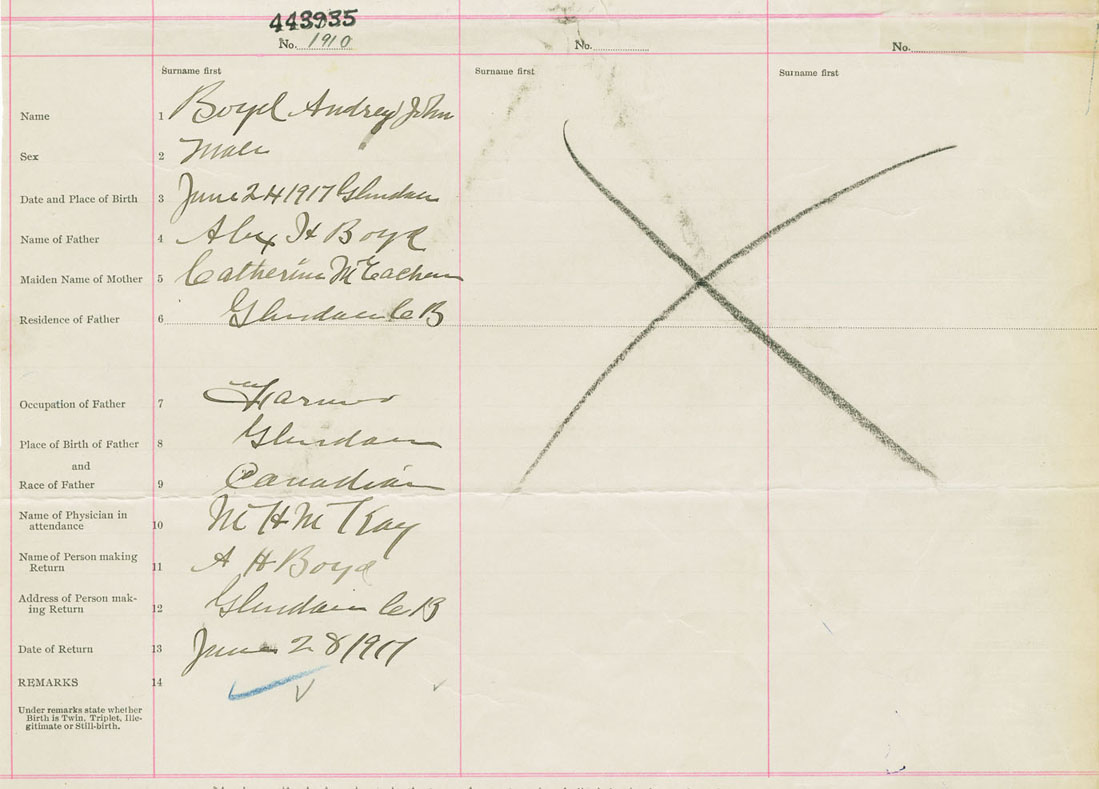 443935
No. 1910
No.
No.
Surname first
Surname first
Surname first
Name 1 Boyd Andrew John
Sex 2 Male
Date and Place of Birth 3 June 24 1917 Glendale
Name of Father 4 Alex H Boyd
Maiden Name of Mother 5 Catherine McEachern
Residence of Father 6 Glendale C B
Occupation of Father 7 Farmer
Place of Birth of Father 8 Glendale
and
Race of Father 9 Canadian
Name of Physician in
attendance 10 M H McKay
Name of Person making
Return 11 A H Boyd
Address of Person mak-
ing Return 12 Glendale C B
Date of Return 13 June 28 1917
REMARKS 14
Under remarks state whether
Birth is Twin, Triplet, Ille-
gitimate or Still-birth.